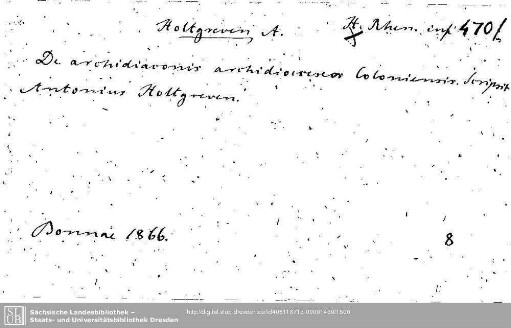 Holtgreven, A. H. Rhen. inf. 470f
De archidiaconis archidioeceseos Coloniensis. Scripsit
Antonius Holtgreven.
Bonnae 1866. 8
Sächsische Landesbibliothek –
Staats- und Universitätsbibliothek Dresden